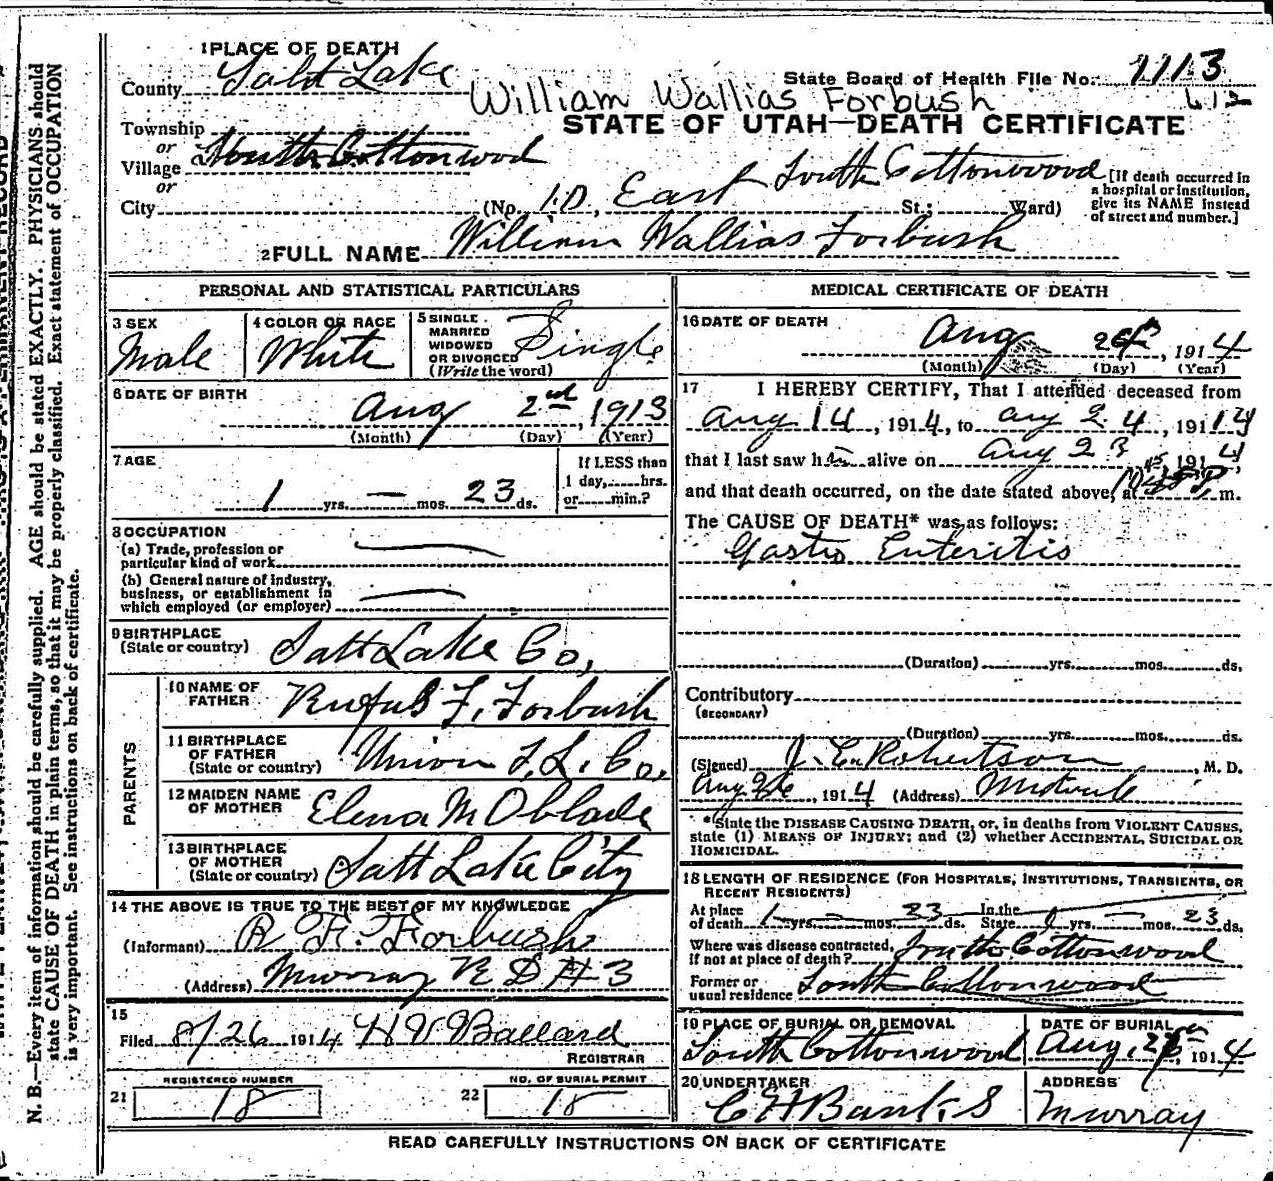 1 PLACE OF DEATH
County Salt Lake
State Board of Health File No. 1113
William Wallias Forbush
612
STATE OF UTAH—DEATH CERTIFICATE
Township
or
Village South Cottonwood
or
City (No. 1.D, East South Cottonwood St.; Ward)
[If death occurred in a hospital or institution, give its NAME instead of street and number.]
2 FULL NAME William Wallias Forbush
PERSONAL AND STATISTICAL PARTICULARS
3 SEX Male
4 COLOR OR RACE White
5 SINGLE. MARRIED WIDOWED OR DIVORCED (Write the word) Single
6 DATE OF BIRTH
Aug 2nd, 1913
(Month) (Day) (Year)
7 AGE
1 yrs. — mos. 23 ds.
If LESS than 1 day, hrs. or min.?
8 OCCUPATION
(a) Trade, profession or
particular kind of work
(b) General nature of industry,
business, or establishment in
which employed (or employer)
9 BIRTHPLACE
(State or country) Salt Lake Co,
PARENTS
10 NAME OF FATHER Rufus F. Forbush
11 BIRTHPLACE OF FATHER (State or country) Union S. L. Co,
12 MAIDEN NAME OF MOTHER Elena M Oblade
13 BIRTHPLACE OF MOTHER (State or country) Salt Lake City
14 THE ABOVE IS TRUE TO THE BEST OF MY KNOWLEDGE
(Informant) R. F. Forbush
(Address) Murray R D #3
15
Filed 8/26 1914 H V Ballard
REGISTRAR
21 REGISTERED NUMBER 18
22 NO. OF BURIAL PERMIT 18
MEDICAL CERTIFICATE OF DEATH
16 DATE OF DEATH
Aug, 1914
(Month) (Day) (Year)
17 I HEREBY CERTIFY, That I attended deceased from
Aug 14, 1914, to Aug 24, 191 14
that I last saw him alive on Aug 23, 1914,
and that death occurred, on the date stated above, at m.
The CAUSE OF DEATH* was as follows:
Gastro Enteritis
(Duration) yrs. mos. ds.
Contributory
(SECONDARY)
(Duration) yrs. mos. ds.
(Signed) J. E. Robertson, M. D.
Aug 26, 1914 (Address) Midvale
*State the DISEASE CAUSING DEATH, or, in deaths from VIOLENT CAUSES,
state (1) MEANS OF INJURY; and (2) whether ACCIDENTAL, SUICIDAL OR
HOMICIDAL.
18 LENGTH OF RESIDENCE (FOR HOSPITALS, INSTITUTIONS, TRANSIENTS, OR
RECENT RESIDENTS)
At place of death 1 yrs. — mos. 23 ds. In the State 1 yrs. — mos. 23 ds.
Where was disease contracted, if not at place of death? South Cottonwood
Former or usual residence South Cottonwood
19 PLACE OF BURIAL OR REMOVAL South Cottonwood
DATE OF BURIAL Aug, 1914
20 UNDERTAKER C H Banks
ADDRESS Murray
READ CAREFULLY INSTRUCTIONS ON BACK OF CERTIFICATE
N. B.—Every item of information should be carefully supplied. AGE should be stated EXACTLY. PHYSICIANS should
state CAUSE OF DEATH in plain terms, so that it may be properly classified. Exact statement of OCCUPATION
is very important. See instructions on back of certificate.